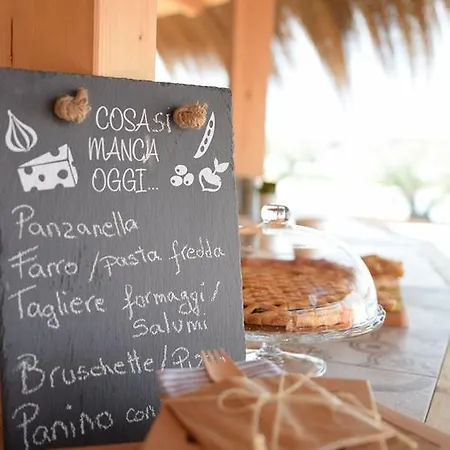 COSA SI
MANGIA
OGGI...
Panzanella
Farro / pasta fredda
Tagliere formaggi /
Salumi
Bruschette /
Panino con